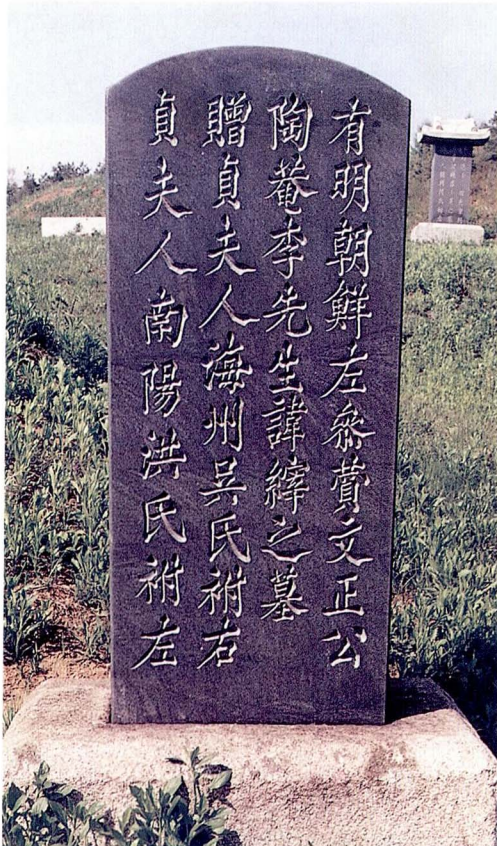 有明朝鮮左叅賛文正公
陶菴李先生諱縡之墓
贈貞夫人海州吳氏祔右
貞夫人南陽洪氏祔左